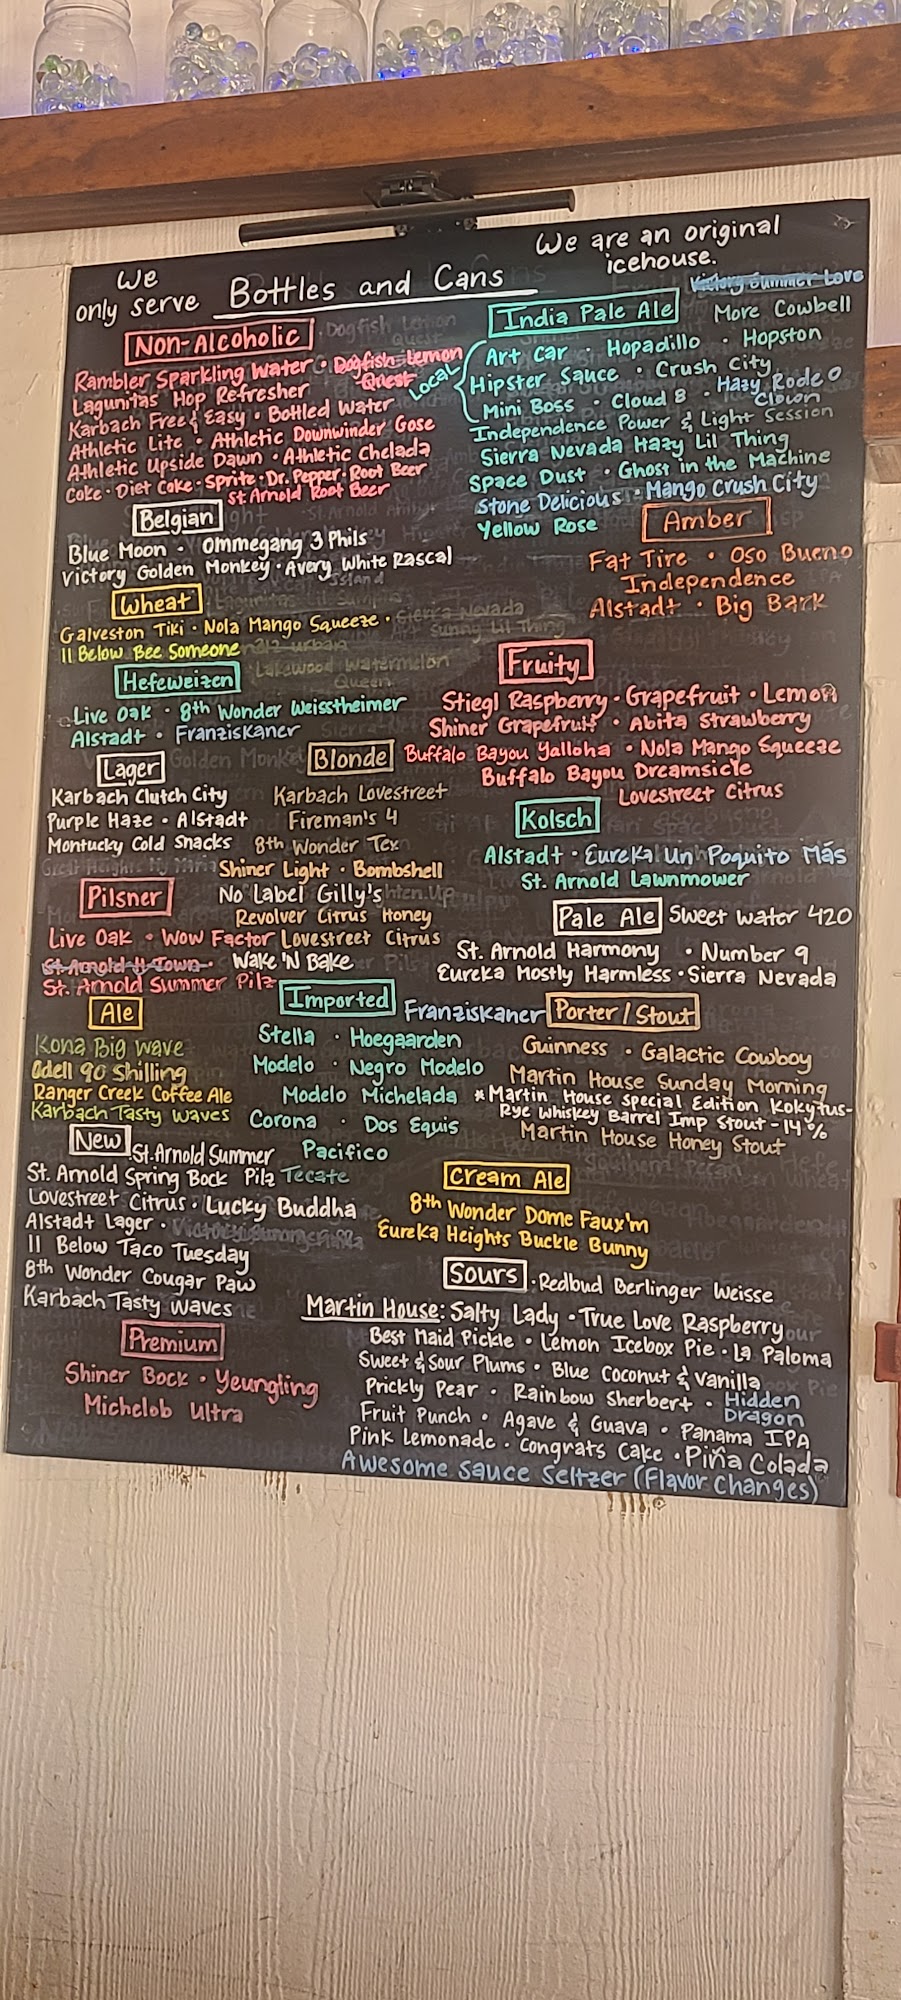 We only serve
Bottles and Cans
We are an original icehouse.
Non-Alcoholic
Rambler Sparkling Water · Dogfish Lemon Quest
Lagunitas Hop Refresher
Karbach Free & Easy · Bottled Water
Athletic Lite · Athletic Downwinder Gose
Athletic Upside Dawn · Athletic Chelada
Coke · Diet Coke · Sprite · Dr. Pepper · Root Beer
St Arnold Root Beer
Belgian
Blue Moon · Ommegang 3 Phils
Victory Golden Monkey · Avery White Rascal
Wheat
Galveston Tiki · Nola Mango Squeeze · Sierra Nevada Sunny Lil Thing
11 Below Bee Someone
Hefeweizen
Lakewood Watermelon Queen
Live Oak · 8th Wonder Weisstheimer
Alstadt · Franziskaner
Lager
Karbach Clutch City
Purple Haze · Alstadt
Montucky Cold Snacks
Blonde
Karbach Lovestreet
Fireman's 4
8th Wonder Tex
Shiner Light · Bombshell
No Label Gilly's
Revolver Citrus Honey
Lovestreet Citrus
Wake 'N Bake
Pilsner
Live Oak · Wow Factor
St Arnold H-Town
St. Arnold Summer Pilz
Ale
Kona Big Wave
Odell 90 Shilling
Ranger Creek Coffee Ale
Karbach Tasty Waves
Imported
Franziskaner
Stella · Hoegaarden
Modelo · Negro Modelo
Modelo Michelada
Corona · Dos Equis
Pacifico
Tecate
New
St. Arnold Summer Pilz
St. Arnold Spring Bock
Lovestreet Citrus · Lucky Buddha
Alstadt Lager ·
11 Below Taco Tuesday
8th Wonder Cougar Paw
Karbach Tasty Waves
Premium
Shiner Bock · Yeungling
Michelob Ultra
India Pale Ale
Victory Summer Love
More Cowbell
Local
Art Car Hopadillo · Hopston
Hipster Sauce · Crush City
Mini Boss · Cloud 8 · Hazy Rodeo Clown
Independence Power & Light Session
Sierra Nevada Hazy Lil Thing
Space Dust · Ghost in the Machine
Stone Delicious · Mango Crush City
Yellow Rose
Amber
Fat Tire · Oso Bueno
Independence
Alstadt · Big Bark
Fruity
Stiegl Raspberry · Grapefruit · Lemon
Shiner Grapefruit · Abita Strawberry
Buffalo Bayou Yalloha · Nola Mango Squeeze
Buffalo Bayou Dreamsicle
Lovestreet Citrus
Kolsch
Alstadt · Eureka Un Poquito Más
St. Arnold Lawnmower
Pale Ale
Sweet Water 420
St. Arnold Harmony · Number 9
Eureka Mostly Harmless · Sierra Nevada
Porter/Stout
Guinness · Galactic Cowboy
Martin House Sunday Morning
*Martin House Special Edition Kokytus-
Rye Whiskey Barrel Imp Stout - 14%
Martin House Honey Stout
Cream Ale
8th Wonder Dome Faux'm
Eureka Heights Buckle Bunny
Sours
· Redbud Berlinger Weisse
Martin House: Salty Lady · True Love Raspberry
Best Maid Pickle · Lemon Icebox Pie · La Paloma
Sweet & Sour Plums · Blue Coconut & Vanilla
Prickly Pear · Rainbow Sherbert · Hidden Dragon
Fruit Punch · Agave & Guava · Panama IPA
Pink Lemonade · Congrats Cake · Piña Colada
Awesome Sauce Seltzer (Flavor Changes)